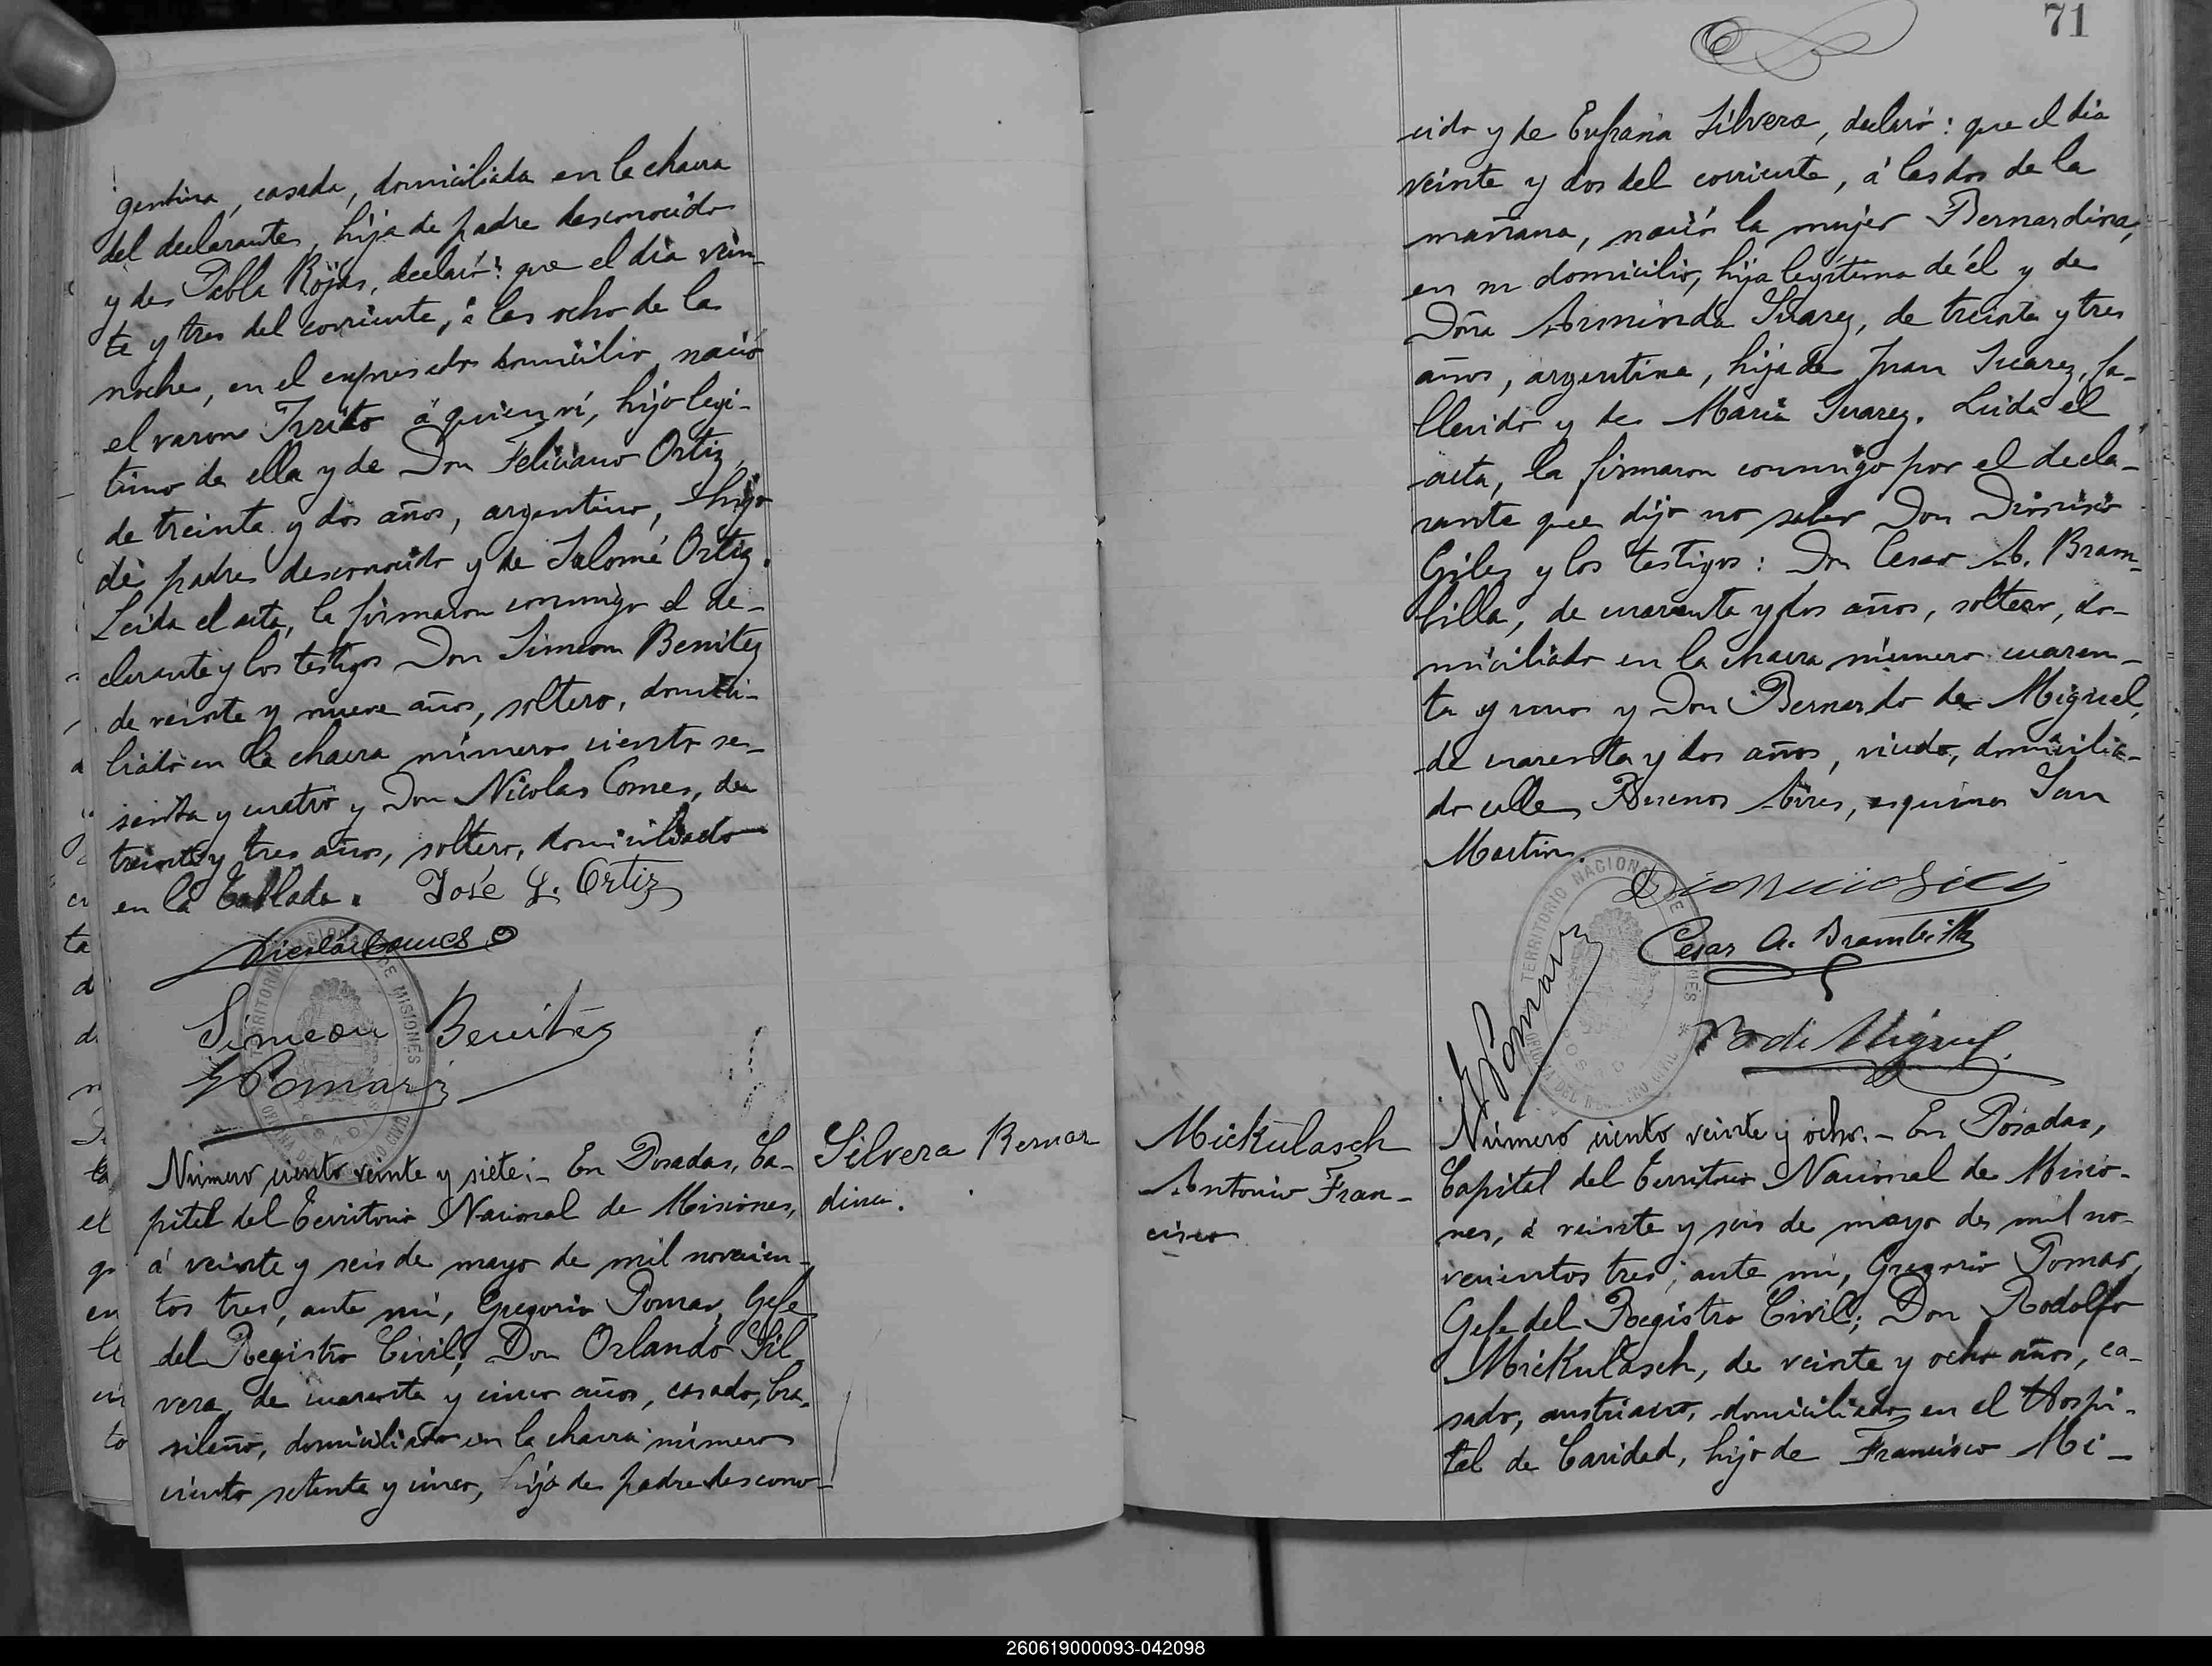 gentina, casada, domiciliada en la chacra
del declarante, hija de padre desconocido
y de Pabla Rojas, declaró: que el dia vein-
te y tres del corriente, á las ocho de la
noche, en el expresado domicilio, nació
el varon Tirito á quien vi, hijo legi-
timo de ella y de Don Feliciano Ortiz,
de treinta y dos años, argentino, hijo
de padre desconocido y de Salomé Ortiz.
Leida el acta, la firmaron conmigo el de-
clarante y los testigos Don Simeon Benitez
de veinte y nueve años, soltero, domici-
liado en la chacra número ciento se-
senta y cuatro y Don Nicolas Comes, de
treinta y tres años, soltero, domiciliado
en la Tablada. José L. Ortiz
Nicolás Comes
Simeon Benitez
G Pomar
Número ciento veinte y siete:- En Posadas, Ca-
pital del Territorio Nacional de Misiones,
á veinte y seis de mayo de mil novecien-
tos tres, ante mi, Gregorio Pomar, Gefe
del Registro Civil; Don Orlando Sil
vera, de cuarenta y cinco años, casado, bra-
sileño, domiciliado en la chacra número
ciento setenta y cinco, hijo de padre descono-
Silvera Bernar
dina.
71
cido y de Eufrasia Silvera, declaró: que el dia
veinte y dos del corriente, á las dos de la
mañana, nació la mujer Bernardina,
en su domicilio, hija legítima de él y de
Doña Arminda Suarez, de treinta y tres
años, argentina, hija de Juan Suarez, fa-
llecido y de Maria Suarez. Leida el
acta, la firmaron conmigo por el decla-
rante que dijo no saber Don Dionisio
Giles y los testigos: Don Cesar A. Bram-
billa, de cuarenta y dos años, soltero, do-
miciliado en la chacra número cuaren-
ta y uno y Don Bernardo de Miguel,
de cuarenta y dos años, viudo, domicilia-
do calle Buenos Aires, esquina San
Martin.
TERRITORIO NACIONAL DE MISIONES
OFICINA DEL REGISTRO CIVIL
POSADAS
Cesar A. Brambilla
G Pomar
B de Miguel
Mickulasch
Antonio Fran-
cisco
Número ciento veinte y ocho.- En Posadas,
Capital del Territorio Nacional de Misio-
nes, á veinte y seis de mayo de mil no-
vecientos tres; ante mi, Gregorio Pomar,
Gefe del Registro Civil; Don Rodolfo
Mickulasch, de veinte y ocho años, ca-
sado, austriaco, domiciliado en el Hospi-
tal de Caridad, hijo de Francisco Mi-
260619000093-042098